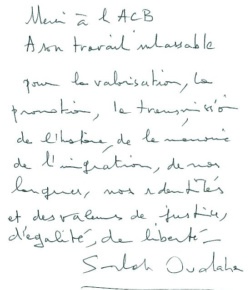 Merci à l'ACB
A son travail inlassable
pour la valorisation, la
promotion, la transmission
de l'histoire, de la mémoire
de l'immigration, de nos
langues, nos identités
et des valeurs de justice,
d'égalité, de liberté –
Salah Oudahar